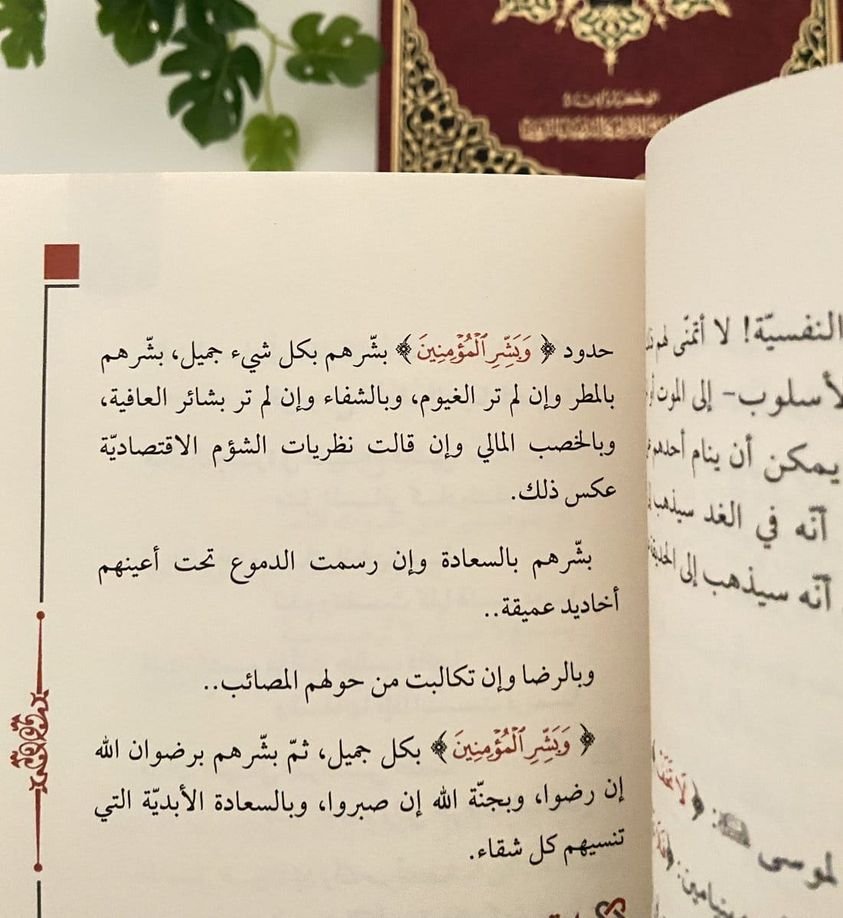 حدود ﴿وَبَشِّرِ ٱلْمُؤْمِنِينَ﴾ بشّرهم بكل شيء جميل، بشّرهم
بالمطر وإن لم تر الغيوم، وبالشفاء وإن لم تر بشائر العافية،
وبالخصب المالي وإن قالت نظريات الشؤم الاقتصاديّة
عكس ذلك.
بشّرهم بالسعادة وإن رسمت الدموع تحت أعينهم
أخاديد عميقة..
وبالرضا وإن تكالبت من حولهم المصائب..
﴿وَبَشِّرِ ٱلْمُؤْمِنِينَ﴾ بكل جميل، ثمّ بشّرهم برضوان الله
إن رضوا، وبجنّة الله إن صبروا، وبالسعادة الأبديّة التي
تنسيهم كل شقاء.
النفسيّة! لا أتمنّى لهم
لأسلوب- إلى الموت
يمكن أن ينام أحدهم
أنّه في الغد سيذهب
أنّه سيذهب إلى
لموسى